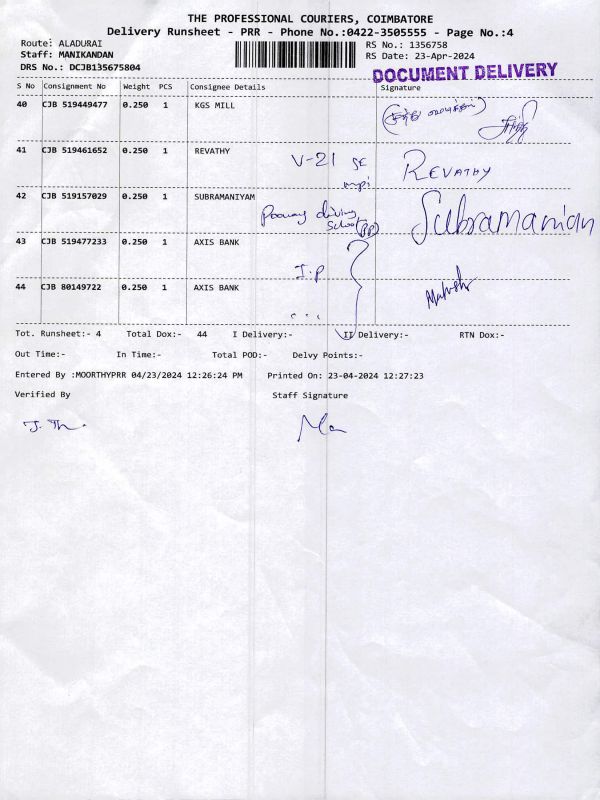 THE PROFESSIONAL COURIERS, COIMBATORE
Delivery Runsheet - PRR - Phone No.:0422-3505555 - Page No.:4
Route: ALADURAI RS No.: 1356758
Staff: MANIKANDAN RS Date: 23-Apr-2024
DRS No.: DCJB135675804 DOCUMENT DELIVERY
S No Consignment No Weight PCS Consignee Details Signature
40 CJB 519449477 0.250 1 KGS MILL
41 CJB 519461652 0.250 1 REVATHY V-21 REVATHY
42 CJB 519157029 0.250 1 SUBRAMANIYAM driving School Subramanian
43 CJB 519477233 0.250 1 AXIS BANK
I.P
44 CJB 80149722 0.250 1 AXIS BANK
...
Tot. Runsheet:- 4 Total Dox:- 44 I Delivery:- II Delivery:- RTN Dox:-
Out Time:- In Time:- Total POD:- Delvy Points:-
Entered By :MOORTHYPRR 04/23/2024 12:26:24 PM Printed On: 23-04-2024 12:27:23
Verified By Staff Signature